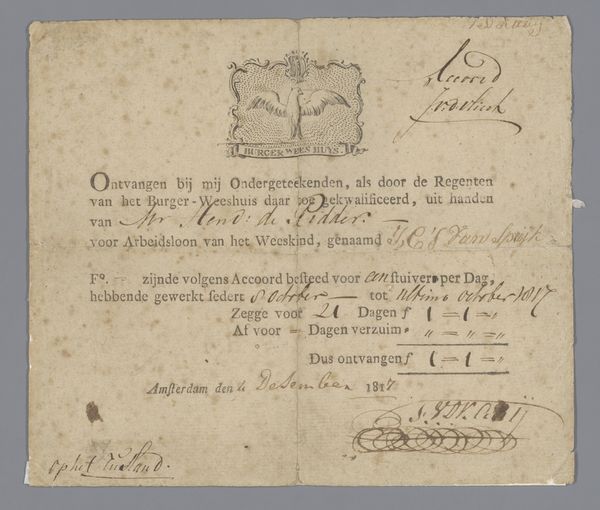 Accord
BURGER WEES HUYS.
Ontvangen bij mij Ondergeteekenden, als door de Regenten
van het Burger-Weeshuis daar toe gekwalificeerd, uit handen
van Mr Hend: de Ridder. —
voor Arbeidsloon van het Weeskind, genaamd J, C, J Van Speijk
F°. — zijnde volgens Accoord besteed voor een stuivers per Dag,
hebbende gewerkt sedert 8 October — tot ultimo October 1817
Zegge voor 21 Dagen f 1 = 1 = „
Af voor = Dagen verzuim „ „ = „ = „
Dus ontvangen f 1 = 1 = „
Amsterdam den Desember 1817
op het Eiland.